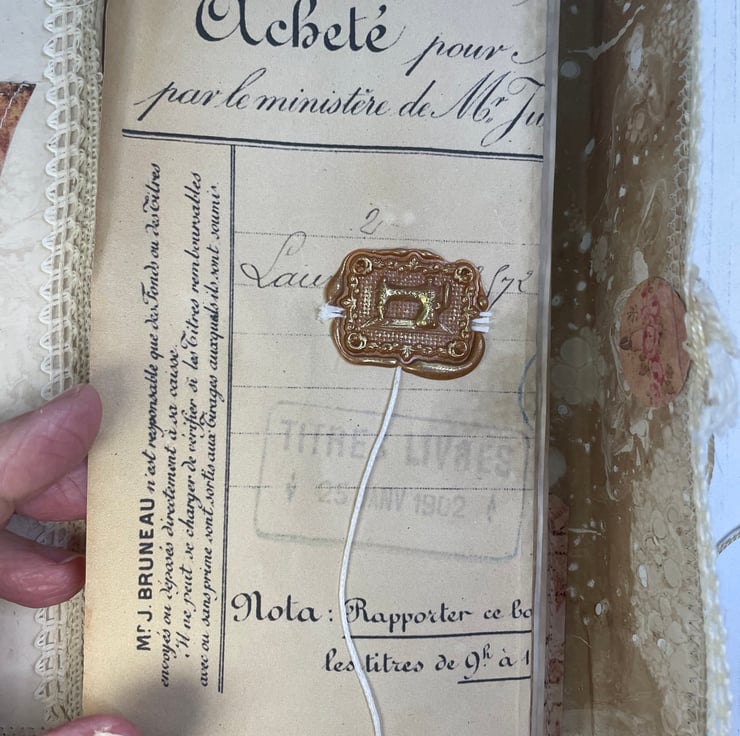 Acheté pour
par le ministère de Mr. Ju
Mr J. BRUNEAU n'est responsable que des Fonds ou des Titres
envoyés ou déposés directement à sa caisse.
Il ne peut se charger de vérifier si les Titres remboursables
avec ou sans prime sont sortis aux tirages auxquels ils sont soumis.
2
Lau
TITRES LIVRES
25 JANV 1902
Nota: Rapporter ce bo
les titres de 9h à 1